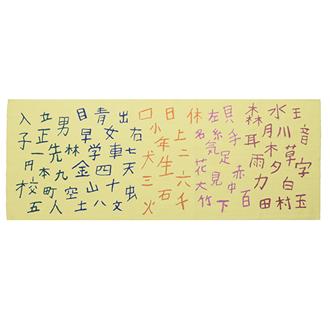 王音字玉
水川草白村
森月木夕
耳雨力田
貝手赤中百
左糸気足見下
休名花大竹
日上二六千
口小年生石
犬三火
出右車七天虫
青女四十文
目早学金山八
男林九空土
立正先本町人
入子一円校五